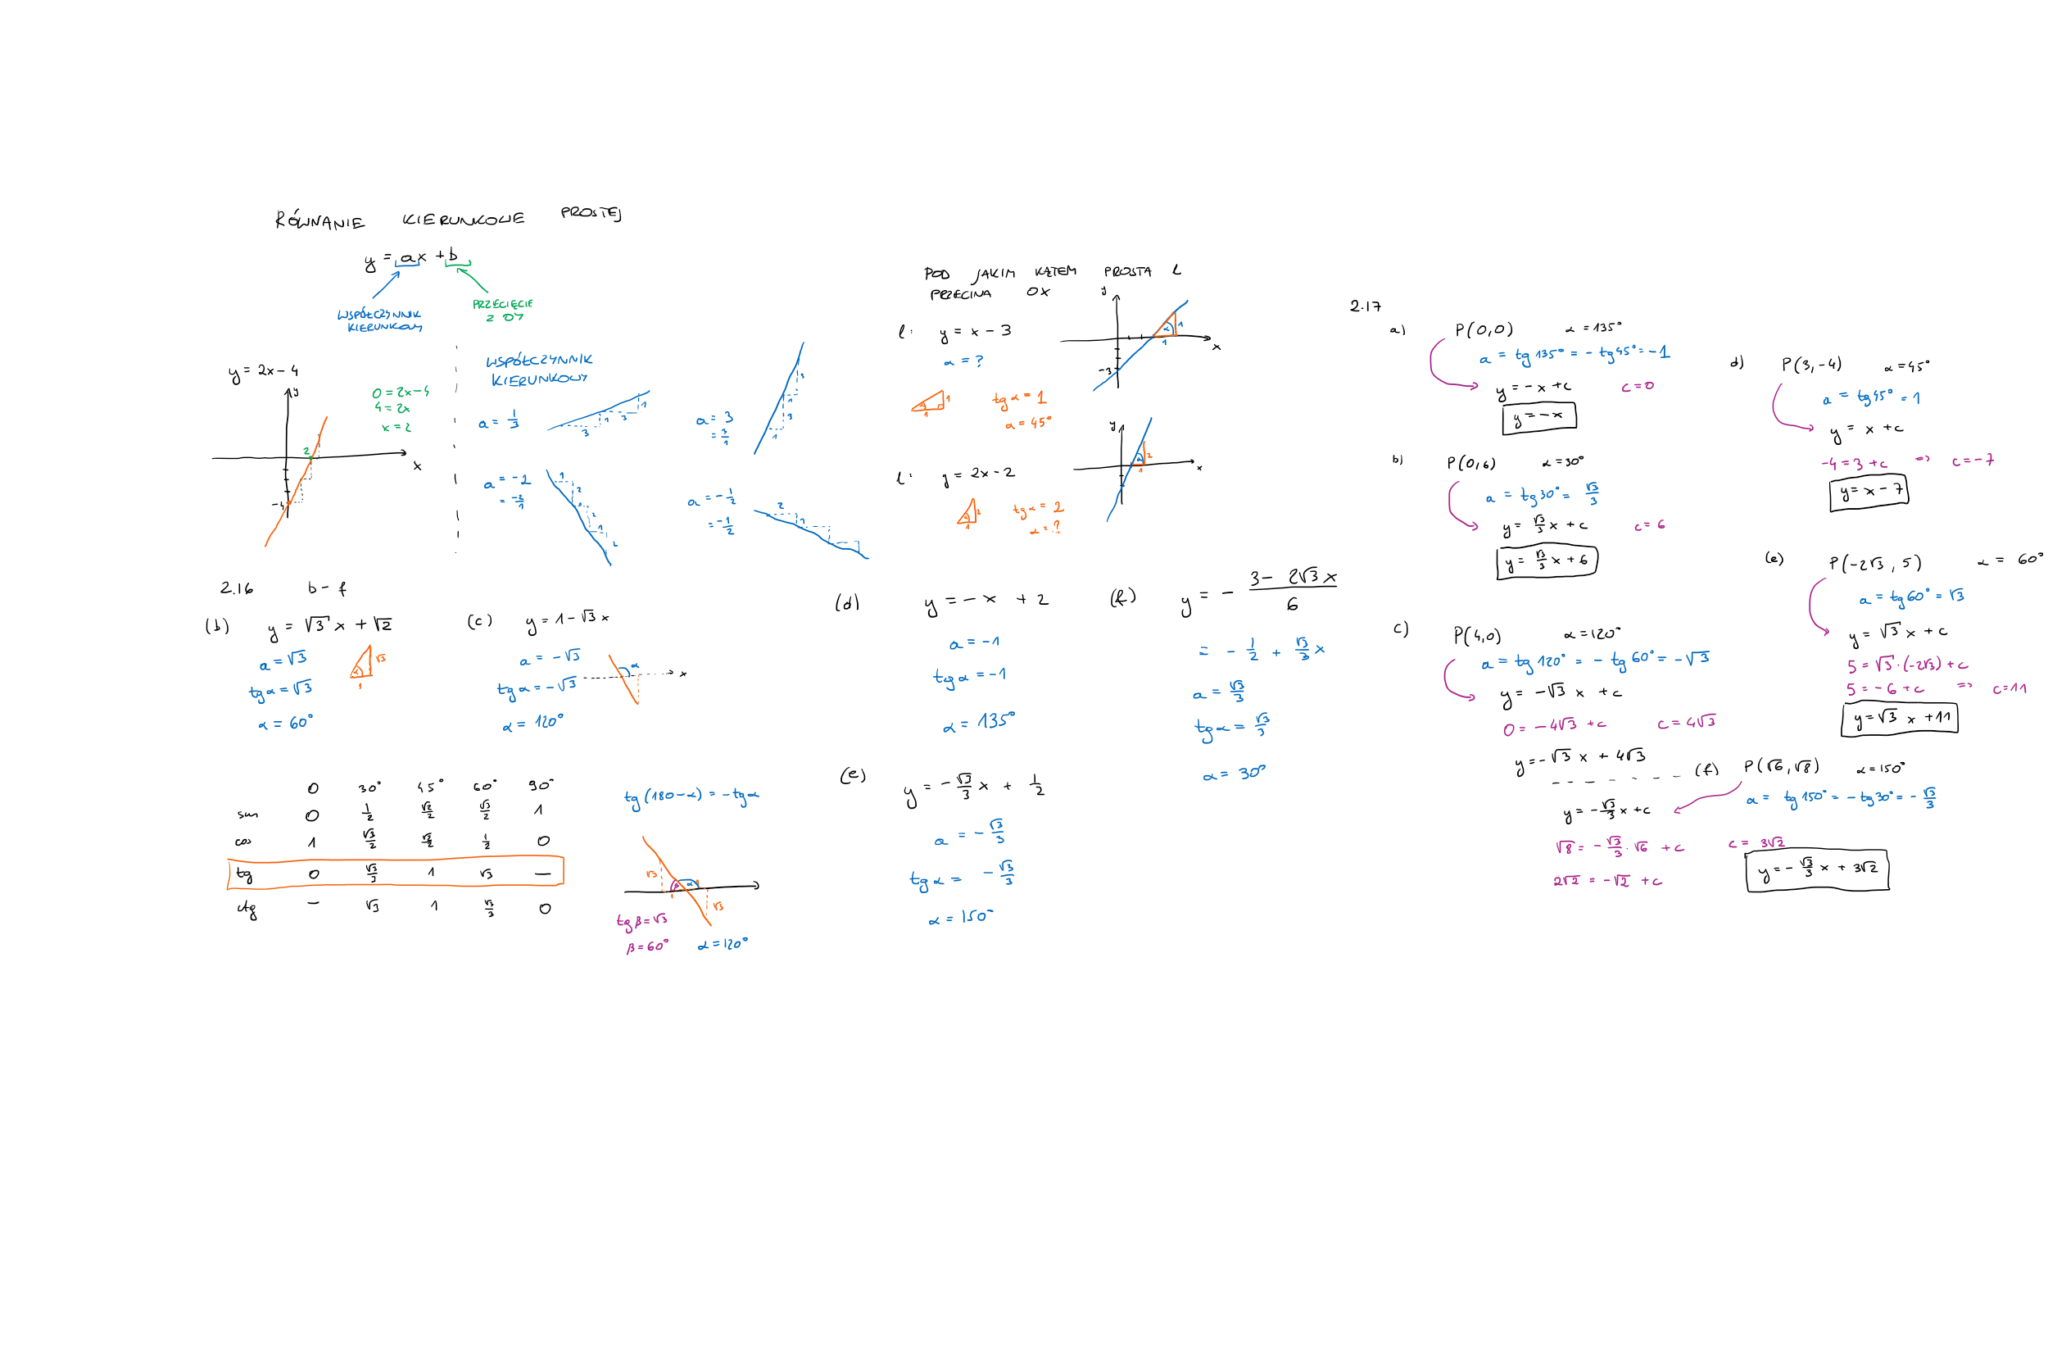 RÓWNANIE KIERUNKOWE PROSTEJ
y = ax + b
WSPÓŁCZYNNIK KIERUNKOWY
PRZECIĘCIE Z OY
y = 2x - 4
y
x
2
-4
0 = 2x - 4
4 = 2x
x = 2
WSPÓŁCZYNNIK
KIERUNKOWY
a = 1/3
3 1 3 1
a = 3
= 3/1
1 3 1 3
a = -2
= -2/1
1 2 1 2 1 2
a = -1/2
= -1/2
2 1
POD JAKIM KĄTEM PROSTA L
PRZECINA OX
l: y = x - 3
α = ?
tg α = 1
α = 45°
y
x
-3
α 1 1
l: y = 2x - 2
tg α = 2
α = ?
y
x
α 2 1
2.16 b - f
(b) y = √3 x + √2
a = √3
tg α = √3
α = 60°
α √3 1
(c) y = 1 - √3 x
a = -√3
tg α = -√3
α = 120°
α x
(d) y = -x + 2
a = -1
tg α = -1
α = 135°
(e) y = -√3/3 x + 1/2
a = -√3/3
tg α = -√3/3
α = 150°
(f) y = - (3 - 2√3 x)/6
= - 1/2 + √3/3 x
a = √3/3
tg α = √3/3
α = 30°
0 30° 45° 60° 90°
sin 0 1/2 √2/2 √3/2 1
cos 1 √3/2 √2/2 1/2 0
tg 0 √3/3 1 √3 —
ctg — √3 1 √3/3 0
tg (180 - α) = -tg α
√3 β α √3
tg β = √3
β = 60° α = 120°
2.17
a) P(0,0) α = 135°
a = tg 135° = - tg 45° = -1
y = -x + c c = 0
y = -x
b) P(0,6) α = 30°
a = tg 30° = √3/3
y = √3/3 x + c c = 6
y = √3/3 x + 6
c) P(4,0) α = 120°
a = tg 120° = - tg 60° = -√3
y = -√3 x + c
0 = -4√3 + c c = 4√3
y = -√3 x + 4√3
d) P(3,-4) α = 45°
a = tg 45° = 1
y = x + c
-4 = 3 + c => c = -7
y = x - 7
(e) P(-2√3, 5) α = 60°
a = tg 60° = √3
y = √3 x + c
5 = √3·(-2√3) + c
5 = -6 + c => c = 11
y = √3 x + 11
(f) P(√6, √8) α = 150°
a = tg 150° = - tg 30° = -√3/3
y = -√3/3 x + c
√8 = -√3/3·√6 + c c = 3√2
2√2 = -√2 + c
y = -√3/3 x + 3√2